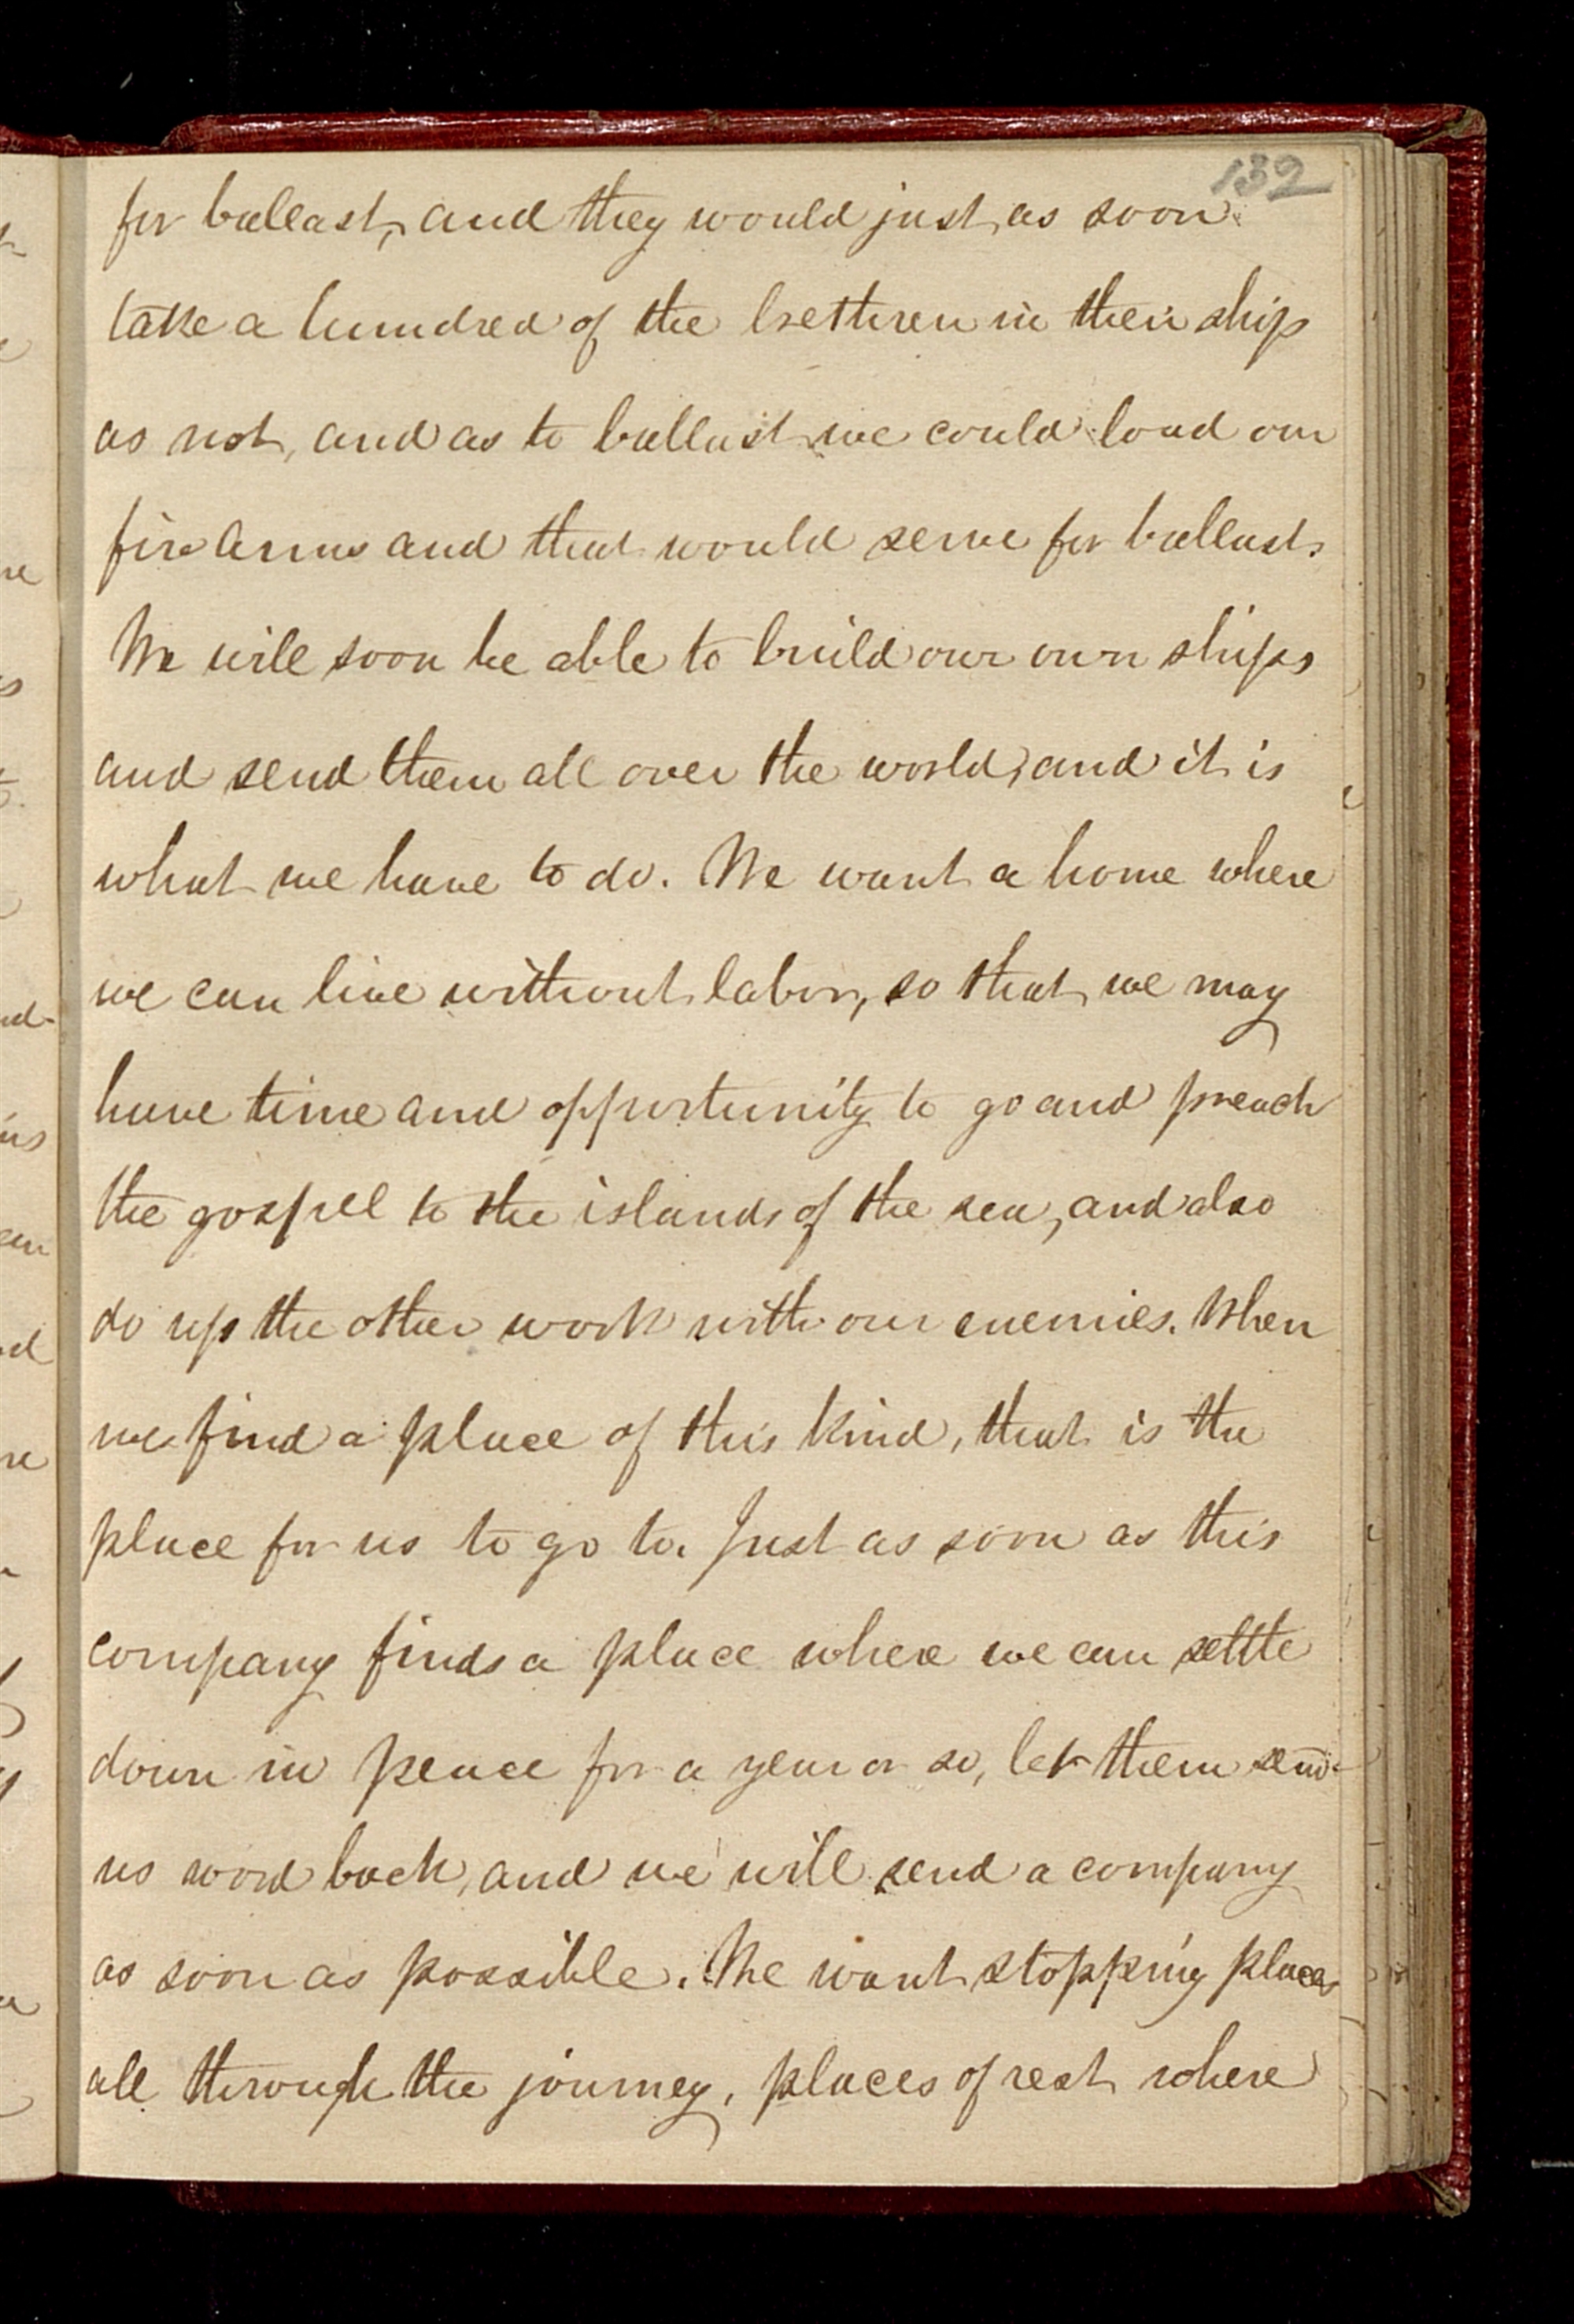 132
for ballast, and they would just as soon
take a hundred of the brethren in their ship
as not, and as to ballast we could load our
fire arms and that would serve for ballast.
We will soon be able to build our own ships
and send them all over the world, and it is
what we have to do. We want a home where
we can live without labor, so that we may
have time and opportunity to go and preach
the gospel to the islands of the sea, and also
do up the other work with our enemies. When
we find a place of this kind, that is the
place for us to go to. Just as soon as this
company finds a place where we can settle
down in peace for a year or so, let them send
us word back, and we will send a company
as soon as possible. We want stopping places
all through the journey, places of rest where